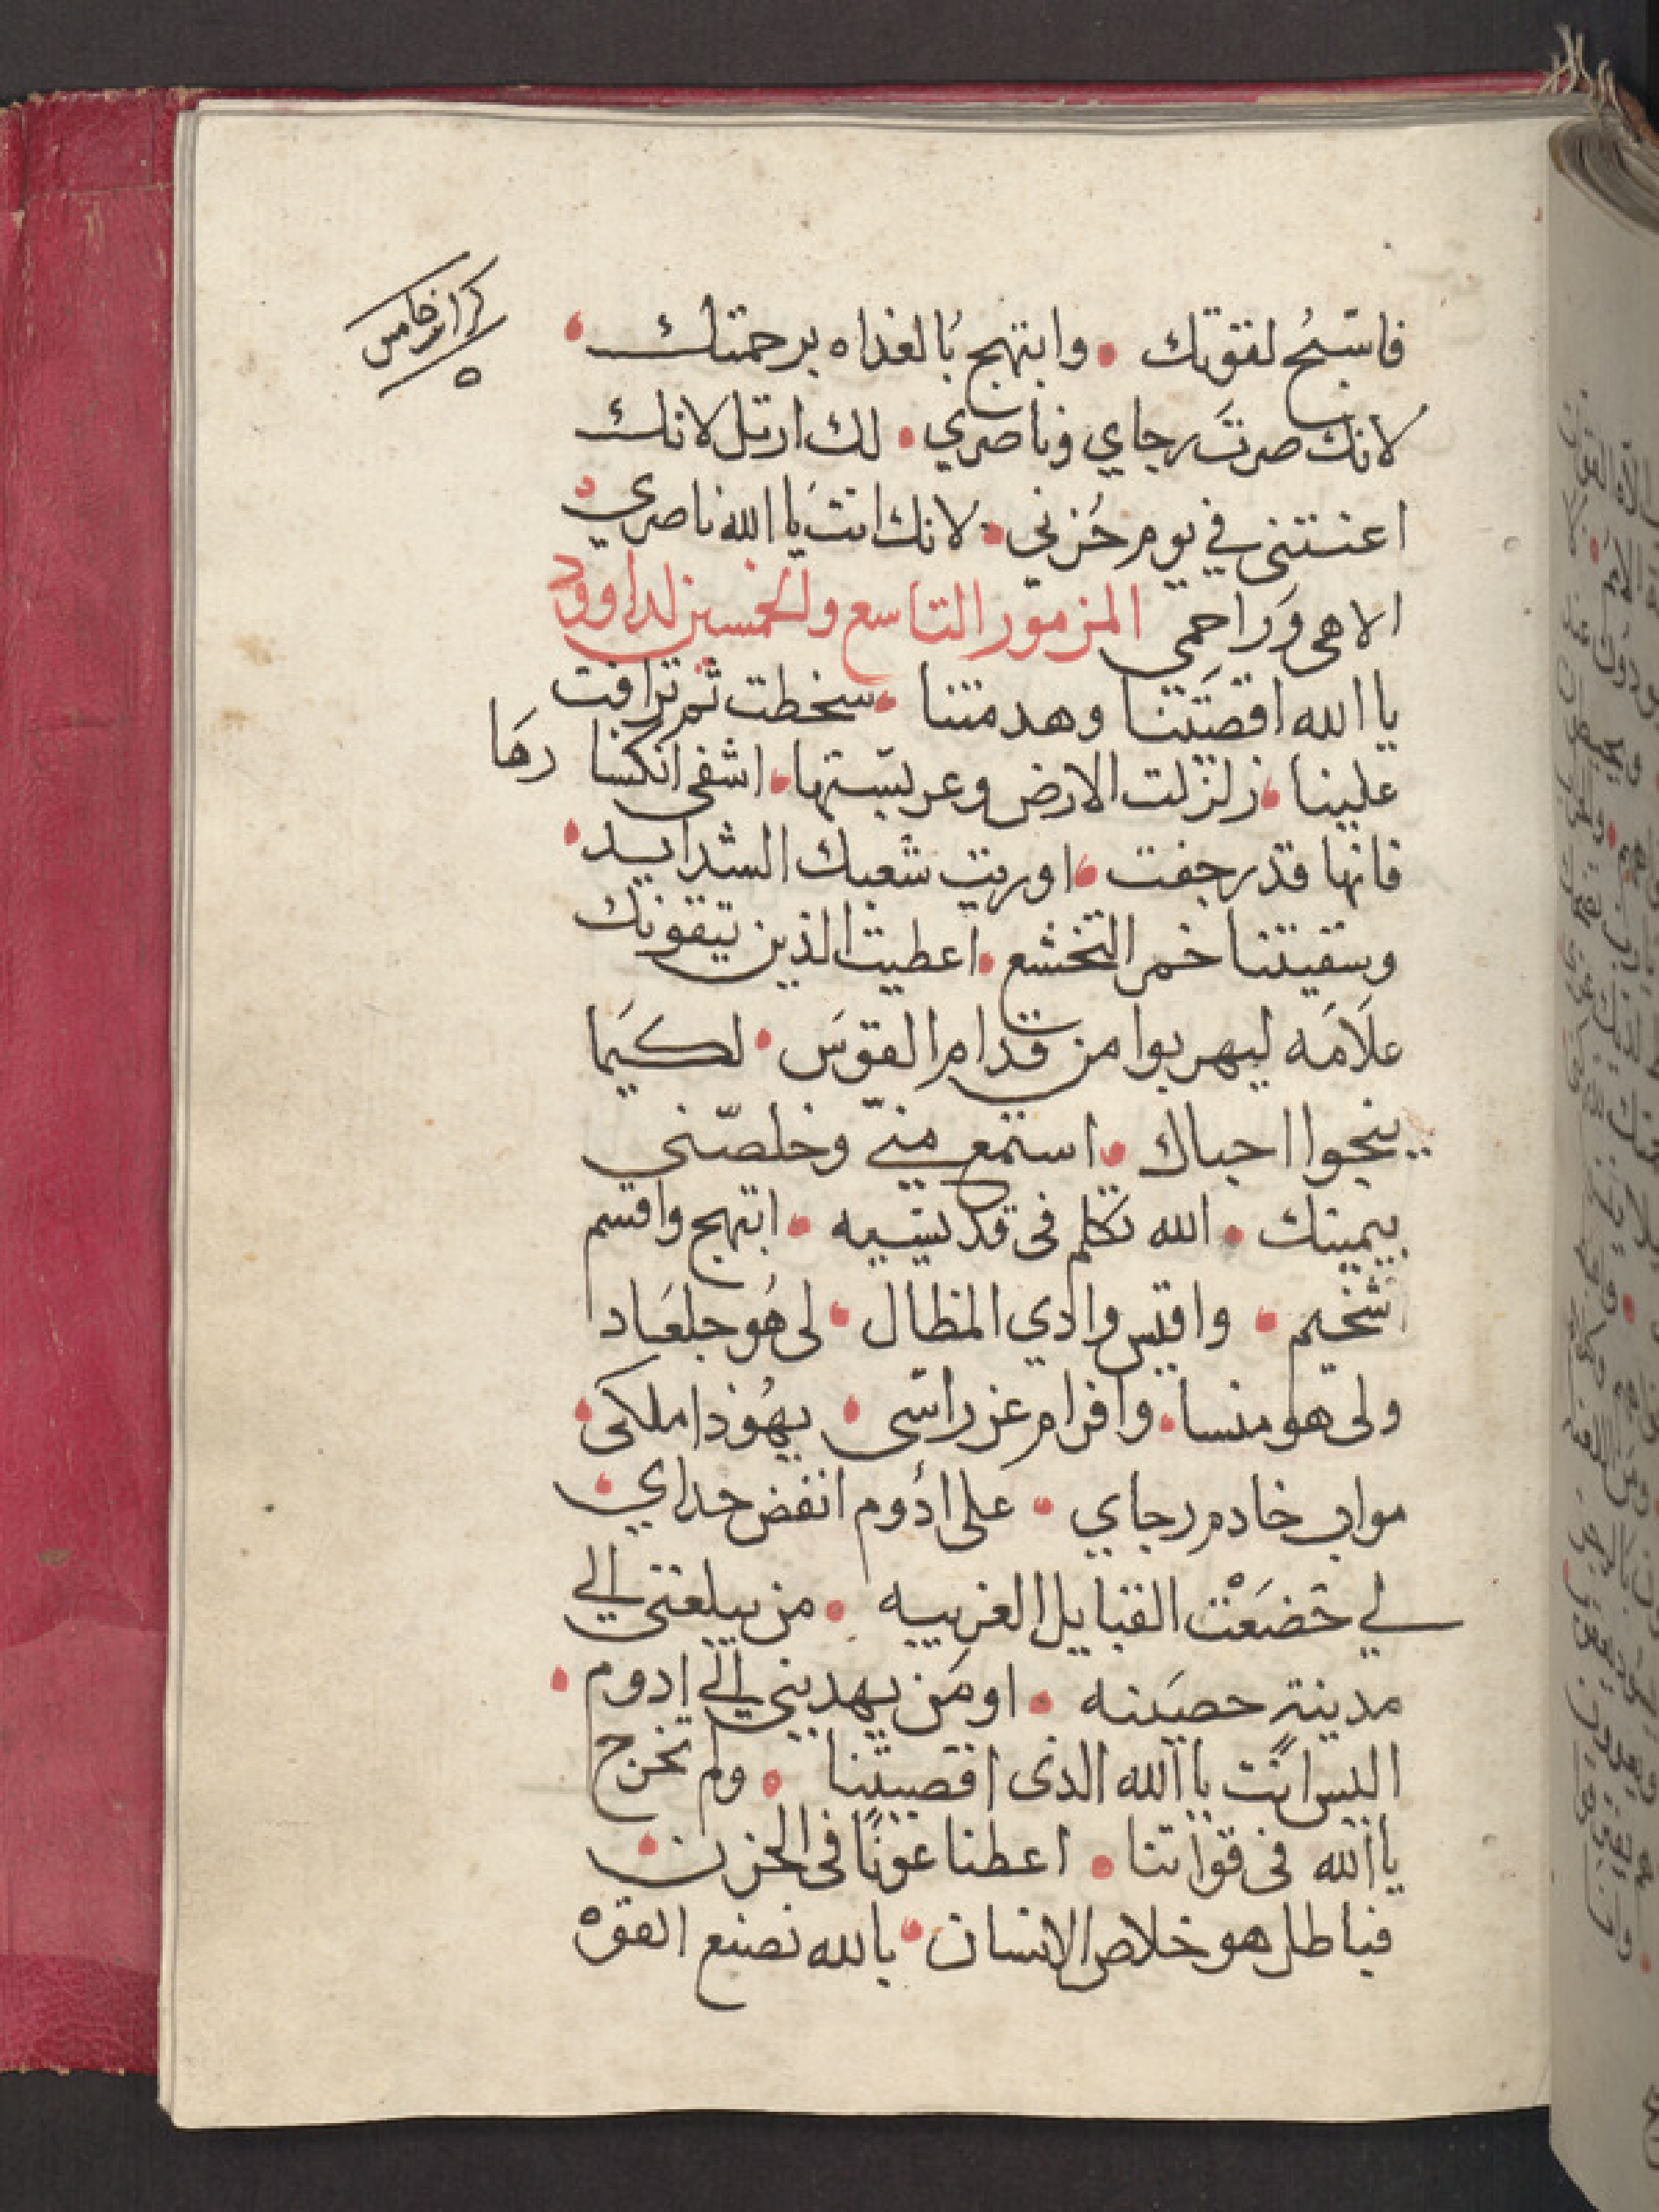 كراس خامس
ه
فاسبّحُ لقوتك • وابتهج بالغداه برحمتك •
لانك صرتَ رجاي وناصري • لك ارتل لانك
اعنتني في يوم حُزني • لانك انتَ يا الله ناصري
الاهى وَراحمي المزمور التاسع والخمسين لداوود
يا الله اقصَيتنا وهدمتنا • سخطت ثم ترافت
علينا • زلزلت الارض وعربستها • اشفى انكسا رهَا
فانها قد رجفت • اوريت شعبك الشدايد •
وسقيتنا خمر التخشع • اعطيت الذين يتقونك
علَامَه ليهربوا من قدام القوسَ • لكيَما
ينجوا احباك • استمع منيّ وخلصّني
بيمينك • الله تكلم فى قديسيه • ابتهج واقسم
شخيم • واقيس وادي المظال • لى هُو جلعَاد
ولى هو منسا • وافرام عز راسّى • يهُوذا ملكى •
مواب خادم رجاي • على ادُوم انفض حداي •
لي خَضَعَتْ القبايل الغريبه • من يبلغنى الي
مدينةٍ حصيَنه • او مَن يهديني الي ادوم •
اليس انَت يا الله الذى اقصيتنا • ولم تخرج
يا الله فى قواتنا • اعطنا عونًا فى الحزن •
فباطل هو خلاص الانسان • بالله نصنع القوهْ